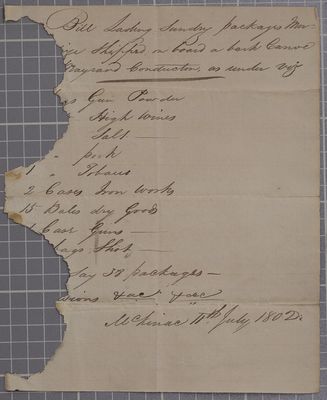 Bill Lading Sundry packages Mer-
Shipped on board a bark Canoe
Conductor, as under viz
Gun Powder
" High Wines
Salt —
" pork
1 " Tobacco
2 Cases Iron Works
15 Bales dry Goods
1 Case Guns —
bags Shot —
Say 58 packages —
sions &ac " &ac
McKinac 11th July 180